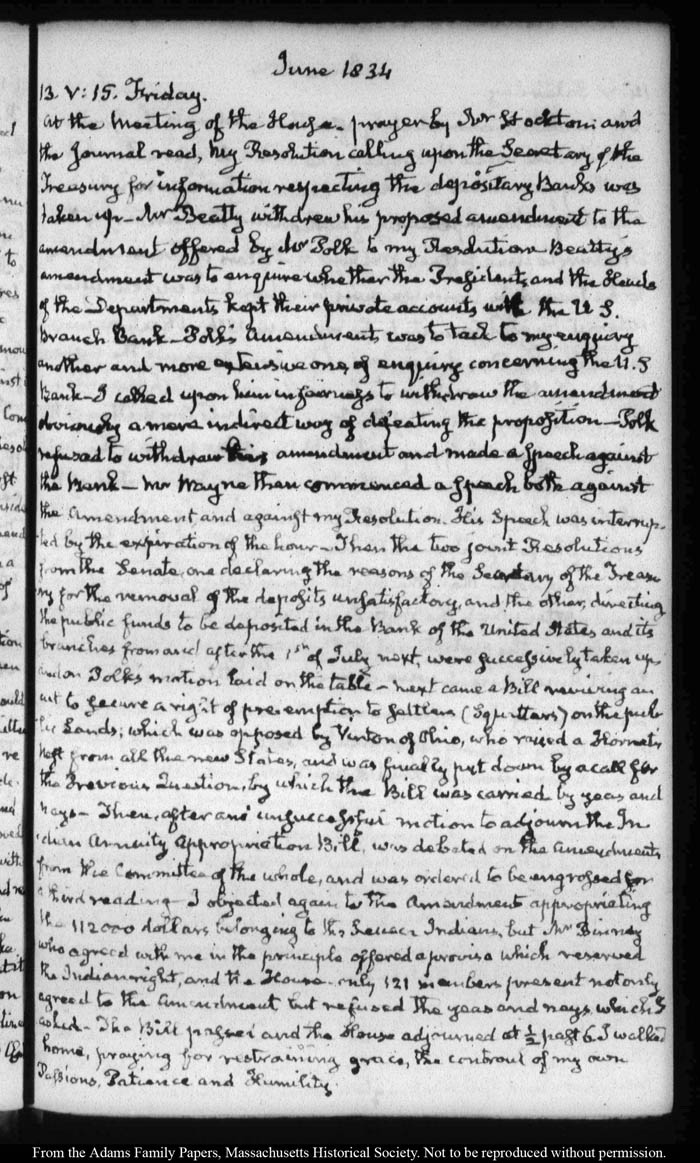 June 1834
13. V: 15. Friday.
At the Meeting of the House prayer by Mr Stockton and
the Journal read, my Resolution calling upon the Secretary of the
Treasury for information respecting the depositary Banks was
taken up - Mr Beatty withdrew his proposed amendment to the
amendment offered by Mr Polk to my Resolution Beatty's
amendment was to enquire whether the Presidents and the Heads
of the Departments kept their private accounts with the U.S.
Branch Bank - Polk's Amendment was to tack to my enquiry
another and more extensive one, of enquiry concerning the U.S
Bank - I called upon him in fairness to withdraw the amendment
obviously a mere indirect way of defeating the proposition - Polk
refused to withdraw his amendment and made a speech against
the Bank - Mr Wayne then commenced a speech both against
the Amendment and against my Resolution. His Speech was interrup-
ted by the expiration of the hour - Then the two joint Resolutions
from the Senate, one declaring the reasons of the Secretary of the Treasu
ry for the removal of the deposits unsatisfactory, and the other, directing
the public funds to be deposited in the Bank of the United States and its
branches from and after the 1st of July next, were successively taken up
and on Polk's motion laid on the table - next came a Bill reviving an
act to secure a right of pre-emption to settlers (Squatters) on the pub
lic Lands; which was opposed by Vinton of Ohio, who raised a Hornet's
Nest from all the new States, and was finally put down by a call for
the Previous Question, by which the Bill was carried by yeas and
nays - Then, after an unsuccessful motion to adjourn the In
dian Annuity Appropriation Bill, was debated on the amendments
from the Committee of the whole, and was ordered to be engrossed for
a third reading - I objected again to the Amendment appropriating
the 112000 dollars belonging to the Seneca Indians, but Mr Binney
who agreed with me in the principle offered a proviso which reserved
the Indian right, and the House - only 121 members present not only
agreed to the Amendment but refused the yeas and nays, which I
asked - The Bill passed and the House adjourned at ½ past 6 I walked
home, praying for restraining grace, the controul of my own
Passions, Patience and Humility.
From the Adams Family Papers, Massachusetts Historical Society. Not to be reproduced without permission.